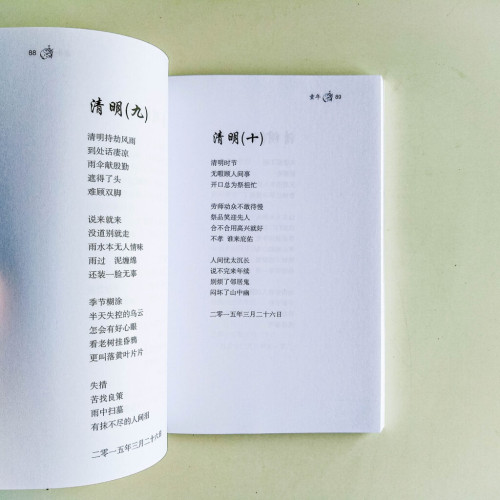 88
清明(九)
清明持劫风雨
到处话凄凉
雨伞献殷勤
遮得了头
难顾双脚
说来就来
没道别就走
雨水本无人情味
雨过 泥缠绵
还装一脸无辜
季节糊涂
半天失控的乌云
怎会有好心眼
看老树挂昏鸦
更叫落黄叶片片
失措
苦找良策
雨中扫墓
有抹不尽的人间泪
二零一五年三月二十六日
童年 89
清明(十)
清明时节
无暇顾人间事
开口总为祭祖忙
劳师动众不敢待慢
祭品笑迎先人
合不合用高兴就好
不孝 谁来庇佑
人间忧太沉长
说不完来年续
别烦了邻居鬼
闷坏了山中幽
二零一五年三月二十六日